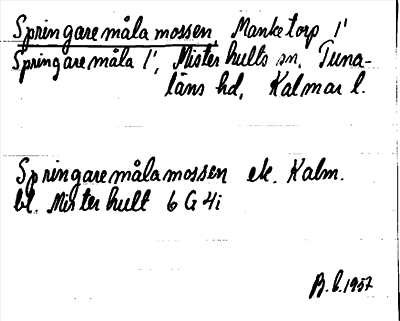 Springaremåla mossen, Manketorp 1'
Springaremåla 1', Misterhults sn, Tuna-
läns hd, Kalmar l.
Springaremålamossen ek. Kalm.
bl. Misterhult 6 G 4i
B.b.1957